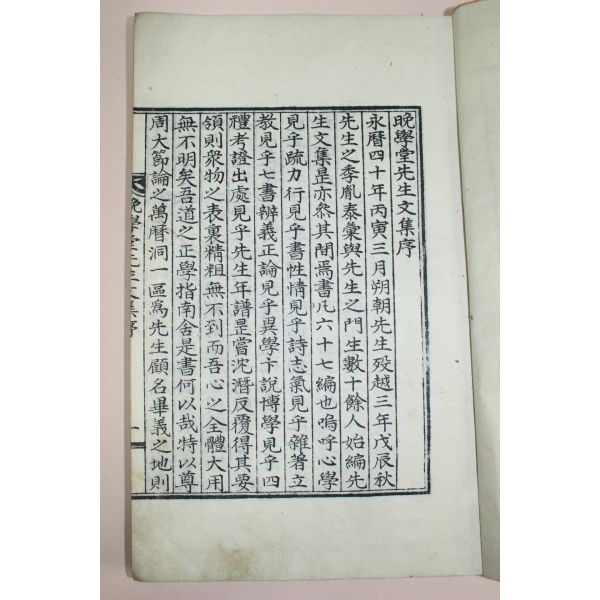 晩學堂先生文集序
永曆四十年丙寅三月朔朝先生歿越三年戊辰秋
先生之季胤泰彙與先生之門生數十餘人始編先
生文集是亦叅其間焉書凡六十七編也嗚呼心學
見乎疏力行見乎書性情見乎詩志氣見乎雜著立
教見乎七書辨義正論見乎異學卞說博學見乎四
禮考證出處見乎先生年譜是嘗沈潛反覆得其要
領則衆物之表裏精粗無不到而吾心之全體大用
無不明矣吾道之正學指南舍是書何以哉特以尊
周大節論之萬曆洞一區爲先生顧名畢義之地則
晩學堂先生文集序
一